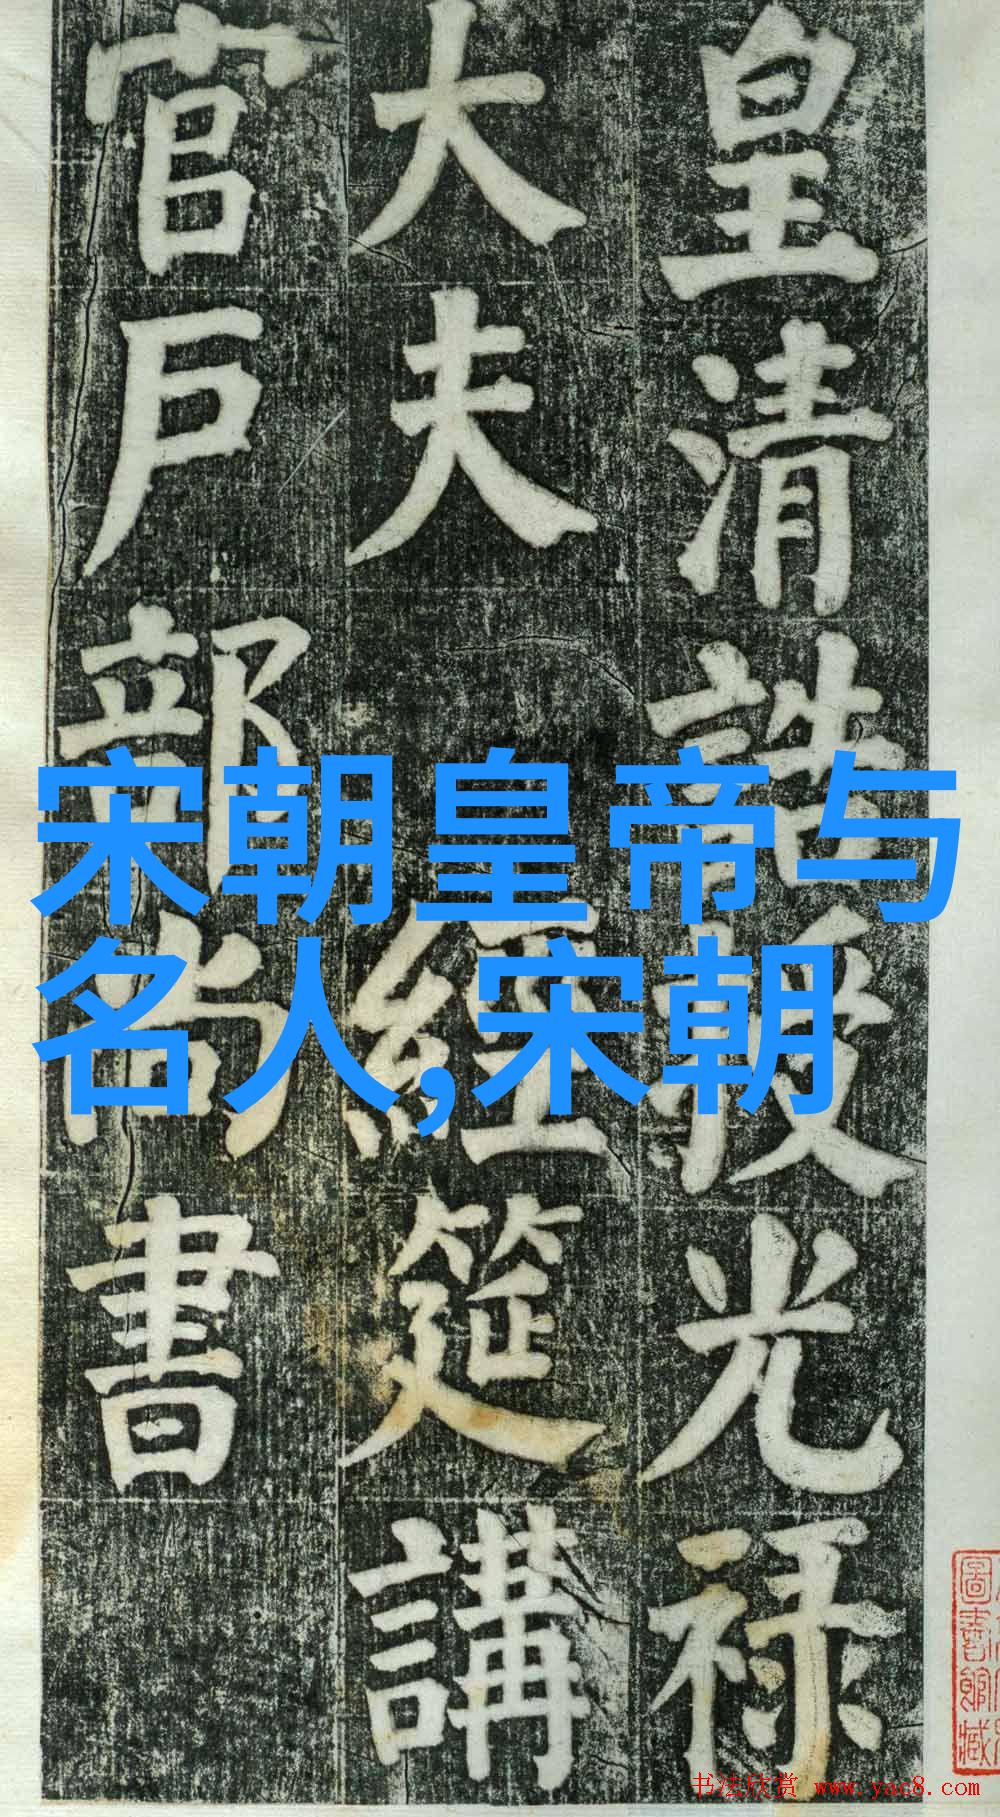 皇清誥授光禄
大夫 經筵講
官戸部尚書
宋朝皇帝与
名人,宋朝
圖書館藏
书法欣赏 www.yac8.com